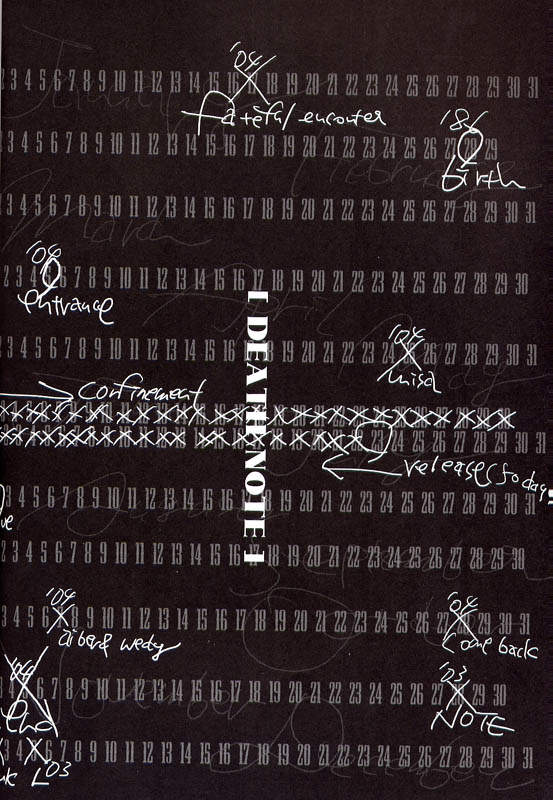 January
'04
3 4 5 6 7 8 9 10 11 12 13 14 15 16 17 18 19 20 21 22 23 24 25 26 27 28 29 30 31
fateful encouter
'86
February
3 4 5 6 7 8 9 10 11 12 13 14 15 16 17 18 19 20 21 22 23 24 25 26 27 28 29
birth
March
3 4 5 6 7 8 9 10 11 12 13 14 15 16 17 18 19 20 21 22 23 24 25 26 27 28 29 30 31
'04
2 3 4 5 6 7 8 9 10 11 12 13 14 15 16 17 18 19 20 21 22 23 24 25 26 27 28 29 30
entrance
April
[ DEATH NOTE ]
'04
May
3 4 5 6 7 8 9 10 11 12 13 14 15 16 17 18 19 20 21 22 23 24 25 26 27 28 29 30 31
misa
confinement
releases 50days
3 4 5 6 7 8 9 10 11 12 13 14 15 16 17 18 19 20 21 22 23 24 25 26 27 28 29 30 31
2 3 4 5 6 7 8 9 10 11 12 13 14 15 16 17 18 19 20 21 22 23 24 25 26 27 28 29 30
September
'04
'04
3 4 5 6 7 8 9 10 11 12 13 14 15 16 17 18 19 20 21 22 23 24 25 26 27 28 29 30 31
aiber& wedy
come back
'04
'03
4 5 6 7 8 9 10 11 12 13 14 15 16 17 18 19 20 21 22 23 24 25 26 27 28 29 30
November
NOTE
3 4 5 6 7 8 9 10 11 12 13 14 15 16 17 18 19 20 21 22 23 24 25 26 27 28 29 30 31
L '03
December